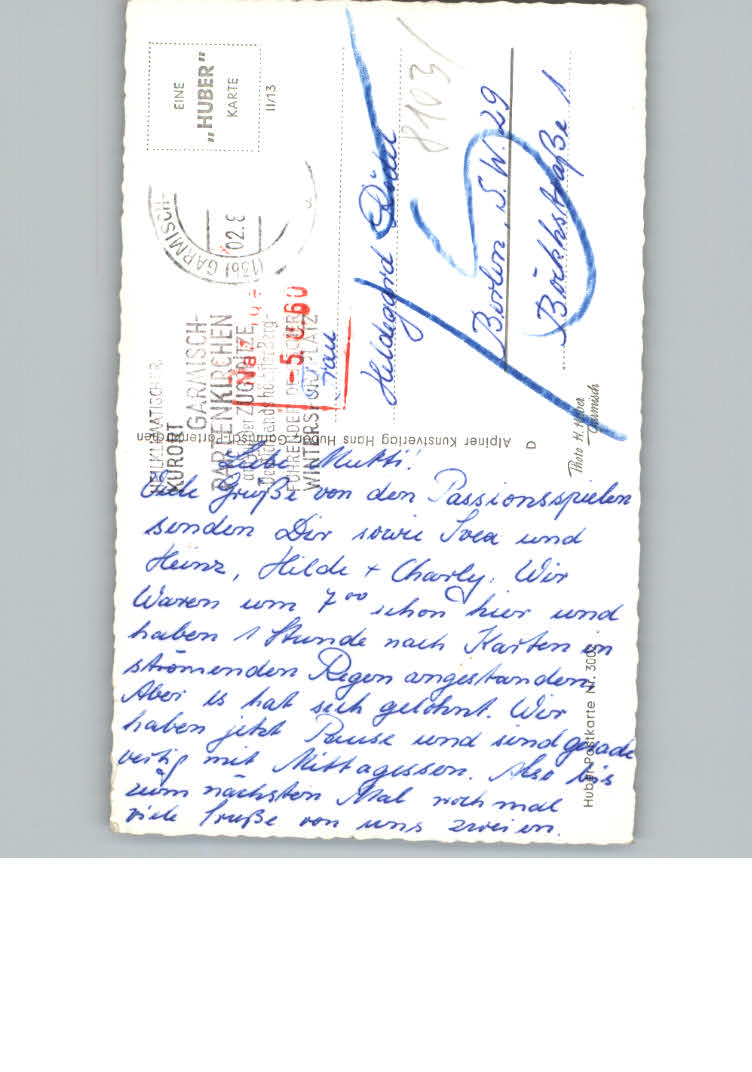 Liebe Mutti!
Viele Grüße von den Passionsspielen
senden Dir sowie Svea und
Heinz, Hilde + Charly. Wir
Waren um 7⁰⁰ schon hier und
haben 1 Stunde nach Karten in
strömenden Regen angestanden,
Aber es hat sich gelohnt. Wir
haben jetzt Pause und sind gerade
vertig mit Mittagessen. Also bis
zum nächsten Mal noch mal
viele Grüße von uns zweien.
EINE
„HUBER”
KARTE
II/13
GARMISCH-
(13b) GARMISCH
HEILKLIMATISCHER
KURORT
GARMISCH-
PARTENKIRCHEN
WINTERSPORTPLATZ
-5.
60
Frau
Hildegard
8103/
Berlin, S.W. 29
Böckhstraße 1
15
Alpiner Kunstverlag Hans Huber Garmisch-Partenkirchen
D
Photo H. Huber
Garmisch
Huber-Postkarte Nr.